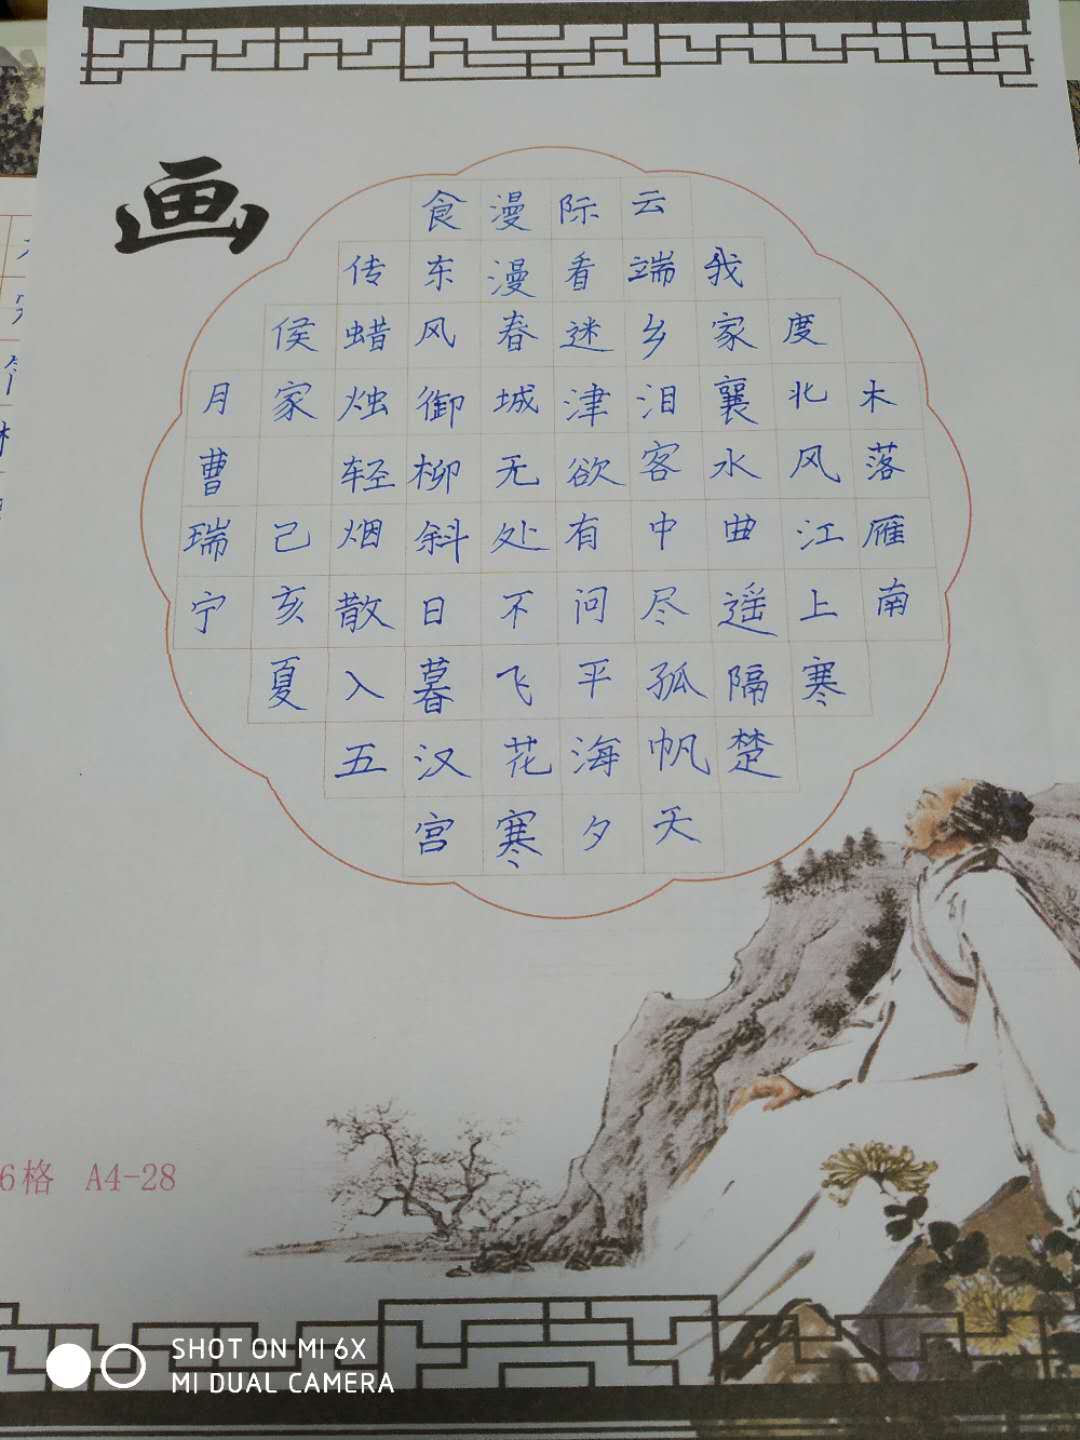 画
木落雁南
度北风江上寒
我家襄水曲遥隔楚
云端乡泪客中尽孤帆天
际看迷津欲有问平海夕
漫漫春城无处不飞花寒
食东风御柳斜日暮汉宫
传蜡烛轻烟散入五
侯家 己亥夏
月曹瑞宁
6格 A4-28
SHOT ON MI 6X
MI DUAL CAMERA